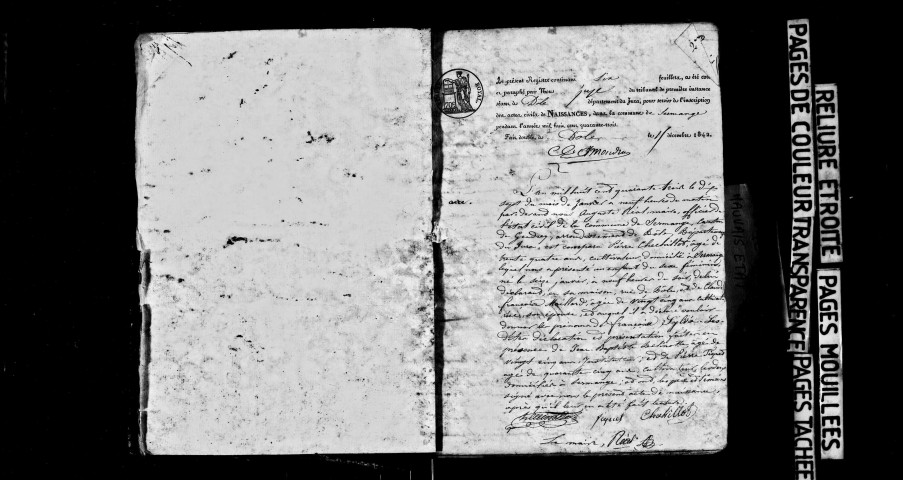 2me
Le présent Registre contenant six feuillets, a été coté
et paraphé par Nous juge du tribunal de première instance
séant à Dole département du Jura, pour servir à l'inscription
des actes civils de NAISSANCES, dans la commune de Sermange
pendant l'année mil huit cent quarante-trois.
Fait double, à Dole le 15 décembre 1842.
ROYAL
L'an mil huit cent quarante trois le dix
sept du mois de janvier à neuf heures du matin
par devant nous Auguste Réal maire, officier de
l'état civil de la commune de Sermange canton
de Gendrey, arrondissement de Dole, Département
du Jura, est comparu Pierre Chatillot, âgé de
trente quatre ans, cultivateur, domicilié à Sermange
lequel nous a présenté un enfant du sexe féminin,
né le seize janvier, à neuf heures du soir, de lui
déclarant, en sa maison, rue de Dole et de Claude
françoise Maillard, âgée de vingt cinq ans
son épouse, et auquel il a déclaré vouloir
donner les prénoms de françoise
déclaration et présentation faites en
présence de Jean Baptiste âgé de
vingt cinq ans, instituteur, et de Pierre
âgé de quarante cinq ans, cultivateur
domiciliés à Sermange, et ont les père et témoins
signé avec nous le présent acte de naissance
après qu'il leur en a été fait lecture.
Chatillot
Le maire, Réal
aire.
MAUVAIS ETAT
PAGES DE COULEUR TRANSPARENCE PAGES TACHEE
RELIURE ETROITE PAGES MOUILLEES